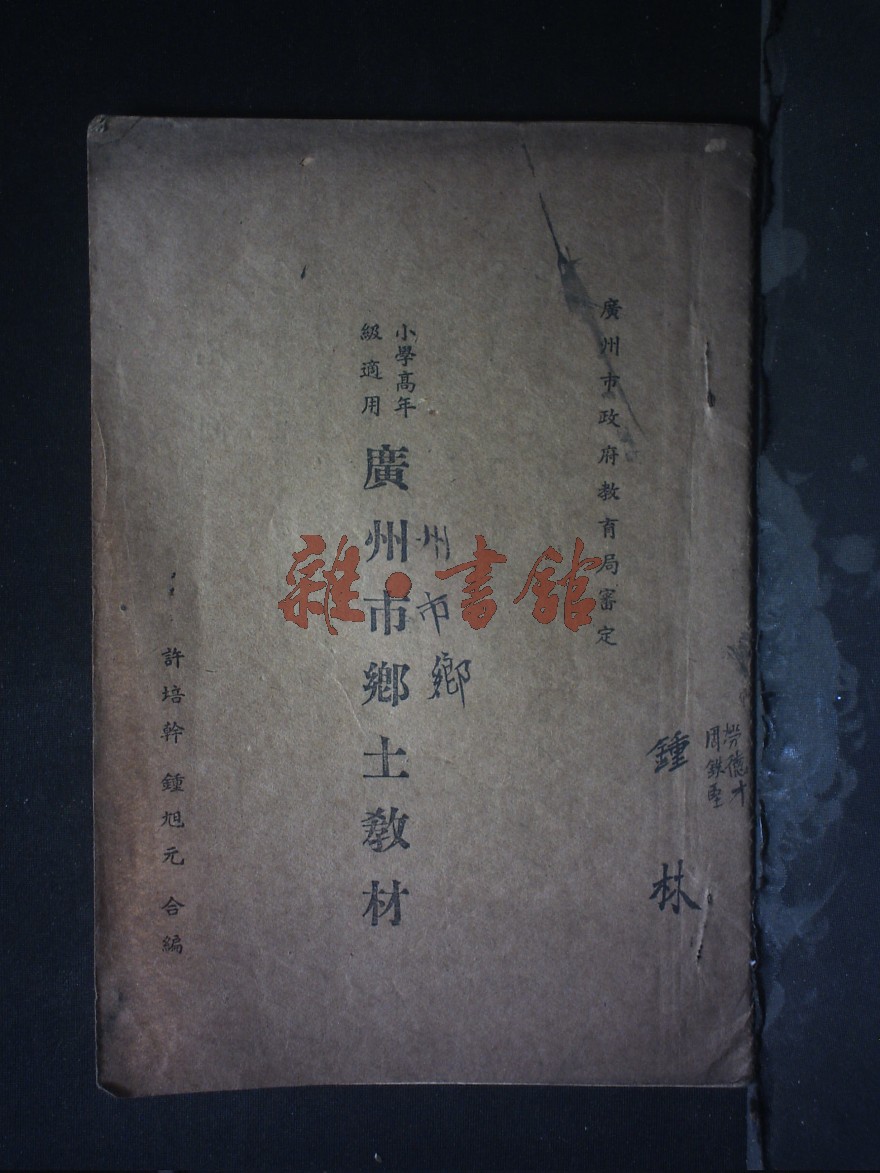 廣州市政府教育局審定
小學高年
級適用
廣州市鄉土教材
州市鄉
許培幹 鍾旭元 合編
鍾 林
勞德才
雜·書館